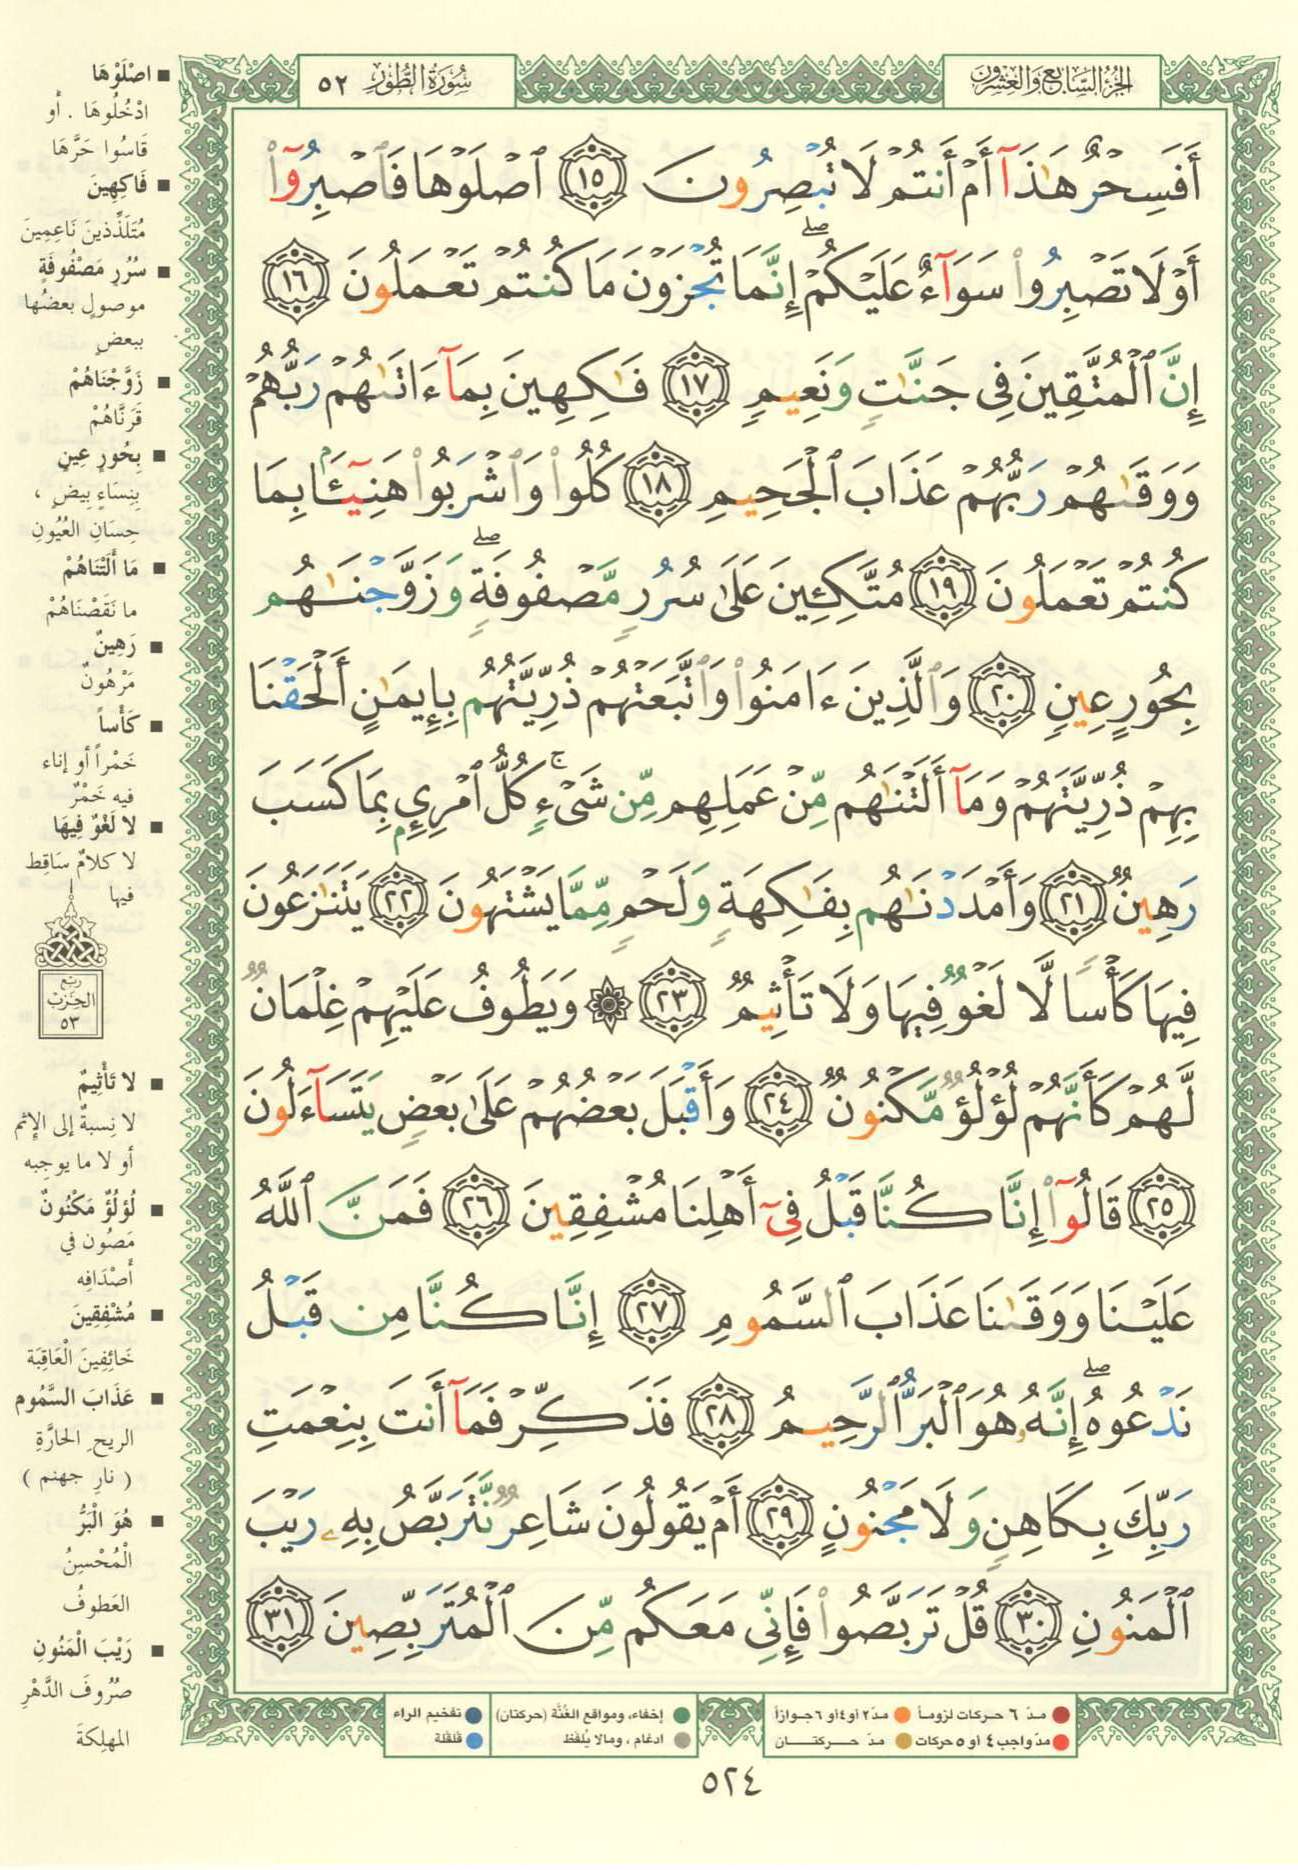 الجزء السابع والعشرون
سورة الطور ٥٢
أَفَسِحْرٌ هَٰذَآ أَمْ أَنتُمْ لَا تُبْصِرُونَ ١٥ ٱصْلَوْهَا فَٱصْبِرُوٓا۟
أَوْ لَا تَصْبِرُوا۟ سَوَآءٌ عَلَيْكُمْ ۖ إِنَّمَا تُجْزَوْنَ مَا كُنتُمْ تَعْمَلُونَ ١٦
إِنَّ ٱلْمُتَّقِينَ فِى جَنَّٰتٍ وَنَعِيمٍ ١٧ فَٰكِهِينَ بِمَآ ءَاتَىٰهُمْ رَبُّهُمْ
وَوَقَىٰهُمْ رَبُّهُمْ عَذَابَ ٱلْجَحِيمِ ١٨ كُلُوا۟ وَٱشْرَبُوا۟ هَنِيٓـًٔۢا بِمَا
كُنتُمْ تَعْمَلُونَ ١٩ مُتَّكِـِٔينَ عَلَىٰ سُرُرٍ مَّصْفُوفَةٍ ۖ وَزَوَّجْنَٰهُم
بِحُورٍ عِينٍ ٢٠ وَٱلَّذِينَ ءَامَنُوا۟ وَٱتَّبَعَتْهُمْ ذُرِّيَّتُهُم بِإِيمَٰنٍ أَلْحَقْنَا
بِهِمْ ذُرِّيَّتَهُمْ وَمَآ أَلَتْنَٰهُم مِّنْ عَمَلِهِم مِّن شَىْءٍ ۚ كُلُّ ٱمْرِئٍۭ بِمَا كَسَبَ
رَهِينٌ ٢١ وَأَمْدَدْنَٰهُم بِفَٰكِهَةٍ وَلَحْمٍ مِّمَّا يَشْتَهُونَ ٢٢ يَتَنَٰزَعُونَ
فِيهَا كَأْسًا لَّا لَغْوٌ فِيهَا وَلَا تَأْثِيمٌ ٢٣ ۞ وَيَطُوفُ عَلَيْهِمْ غِلْمَانٌ
لَّهُمْ كَأَنَّهُمْ لُؤْلُؤٌ مَّكْنُونٌ ٢٤ وَأَقْبَلَ بَعْضُهُمْ عَلَىٰ بَعْضٍ يَتَسَآءَلُونَ
٢٥ قَالُوٓا۟ إِنَّا كُنَّا قَبْلُ فِىٓ أَهْلِنَا مُشْفِقِينَ ٢٦ فَمَنَّ ٱللَّهُ
عَلَيْنَا وَوَقَىٰنَا عَذَابَ ٱلسَّمُومِ ٢٧ إِنَّا كُنَّا مِن قَبْلُ
نَدْعُوهُ ۖ إِنَّهُۥ هُوَ ٱلْبَرُّ ٱلرَّحِيمُ ٢٨ فَذَكِّرْ فَمَآ أَنتَ بِنِعْمَتِ
رَبِّكَ بِكَاهِنٍ وَلَا مَجْنُونٍ ٢٩ أَمْ يَقُولُونَ شَاعِرٌ نَّتَرَبَّصُ بِهِۦ رَيْبَ
ٱلْمَنُونِ ٣٠ قُلْ تَرَبَّصُوا۟ فَإِنِّى مَعَكُم مِّنَ ٱلْمُتَرَبِّصِينَ ٣١
■ اصْلَوْهَا
ادْخُلُوهَا . أو
قَاسُوا حَرَّهَا
■ فَاكِهِينَ
مُتَلَذِّذينَ نَاعِمِينَ
■ سُرُرٍ مَصْفُوفَةٍ
موصولٍ بعضُها
ببعضٍ
■ زَوَّجْنَاهُمْ
قَرَنَّاهُمْ
■ بِحُورٍ عِينٍ
بِنِسَاءٍ بِيضٍ ،
حِسانِ العُيُونِ
■ مَا أَلَتْنَاهُمْ
ما نَقَصْنَاهُمْ
■ رَهِينٌ
مَرْهُونٌ
■ كَأْساً
خَمْراً أو إناء
فيه خَمْرٌ
■ لا لَغْوٌ فِيهَا
لا كلامٌ سَاقِط
فيها
ربع
الحزب
٥٣
■ لا تَأْثِيمٌ
لا نِسبةٌ إلى الإثم
أو لا ما يوجِبه
■ لُؤْلُؤٌ مَكْنُونٌ
مَصُون في
أَصْدَافِه
■ مُشْفِقِينَ
خَائِفِينَ الْعَاقِبَة
■ عَذَابَ السَّمُومِ
الريحِ الحارَّةِ
( نارِ جهنم )
■ هُوَ الْبَرُّ
الْمُحْسِنُ
العَطوفُ
■ رَيْبَ الْمَنُونِ
صُرُوفَ الدَّهْرِ
المهلِكَةَ
مدّ ٦ حركات لزوماً مدّ ٢ أو ٤ أو ٦ جوازاً
مدّ واجب ٤ أو ٥ حركات مدّ حركتان
إخفاء، ومواقع الغُنَّة (حركتان)
ادغام ، ومالا يُلفَظ
تفخيم الراء
قلقلة
٥٢٤